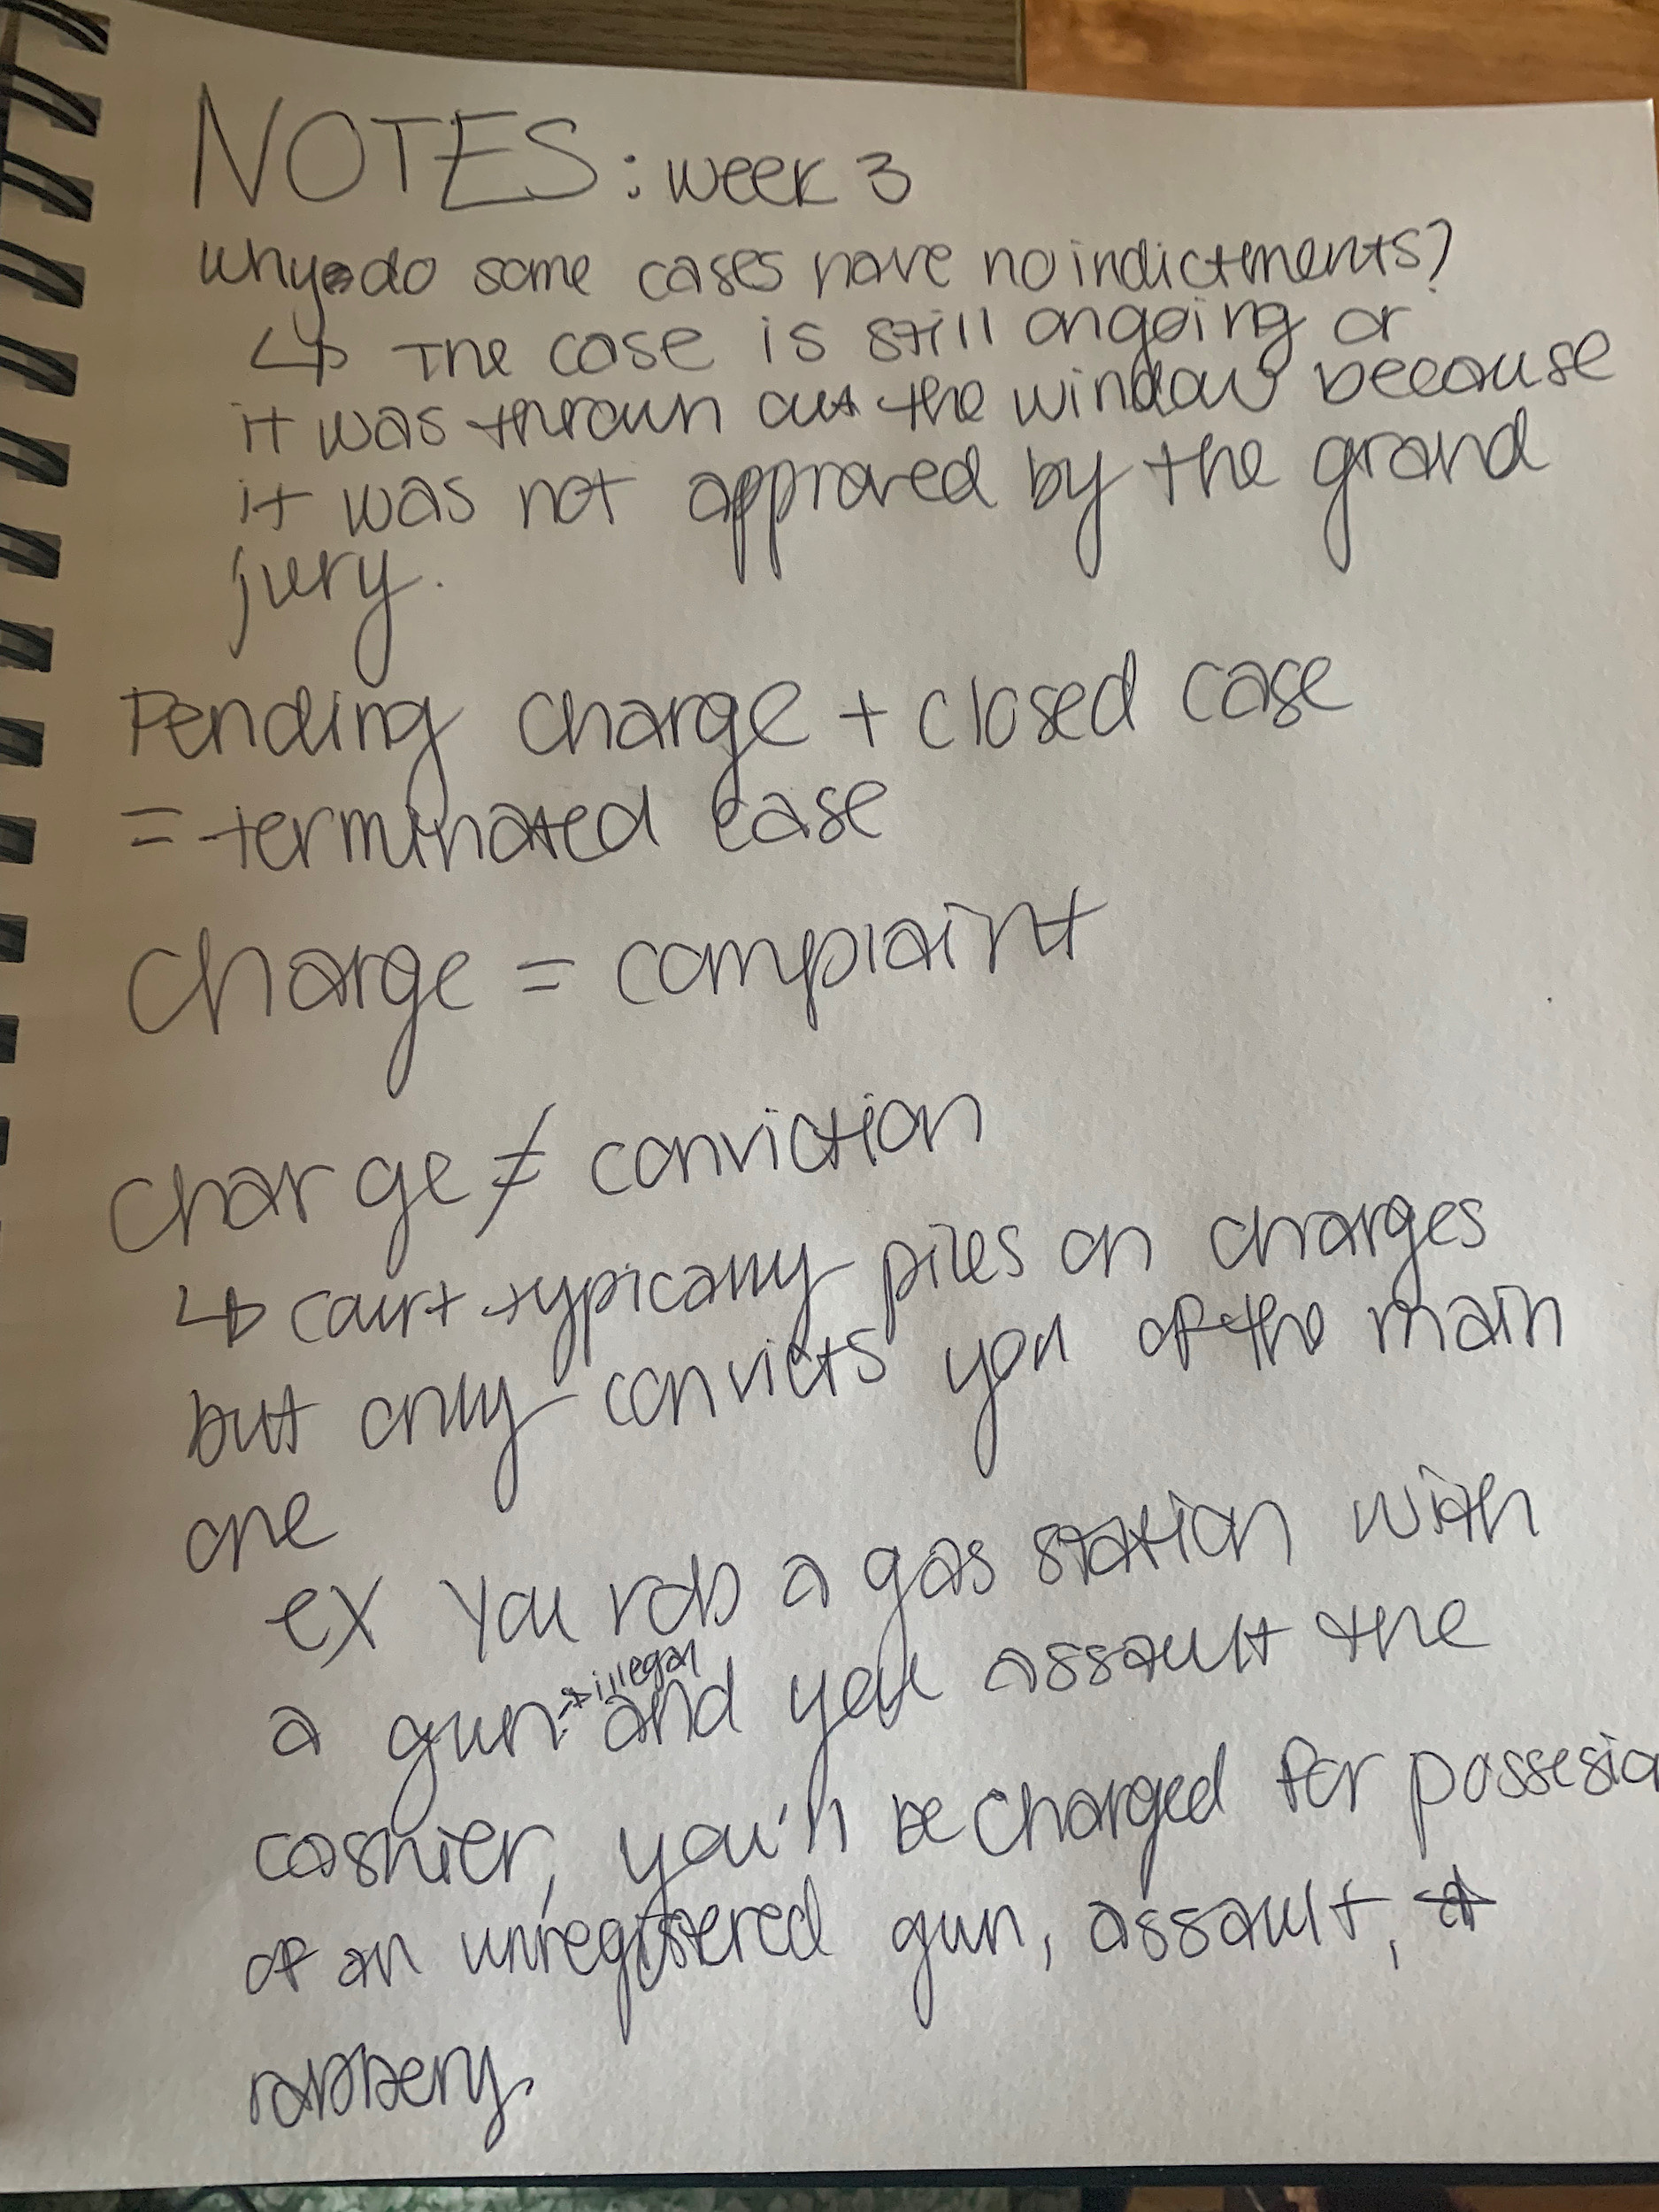 NOTES: week 3
why do some cases have no indictments?
↳ The case is still ongoing or
it was thrown out the window because
it was not approved by the grand
jury.
Pending charge + closed case
= terminated case
charge = complaint
charge ≠ conviction
↳ court typically piles on charges
but only convicts you of the main
one
ex you rob a gas station with
a gun → illegal and you assault the
cashier, you'll be charged for possesio
of an unregistered gun, assault, +
robbery.